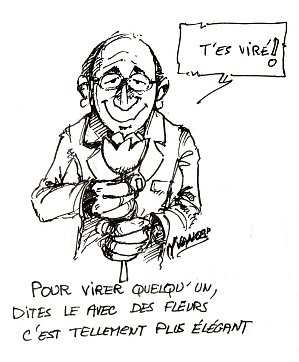 T'ES VIRÉ !
POUR VIRER QUELQU'UN,
DITES LE AVEC DES FLEURS
C'EST TELLEMENT PLUS ÉLÉGANT